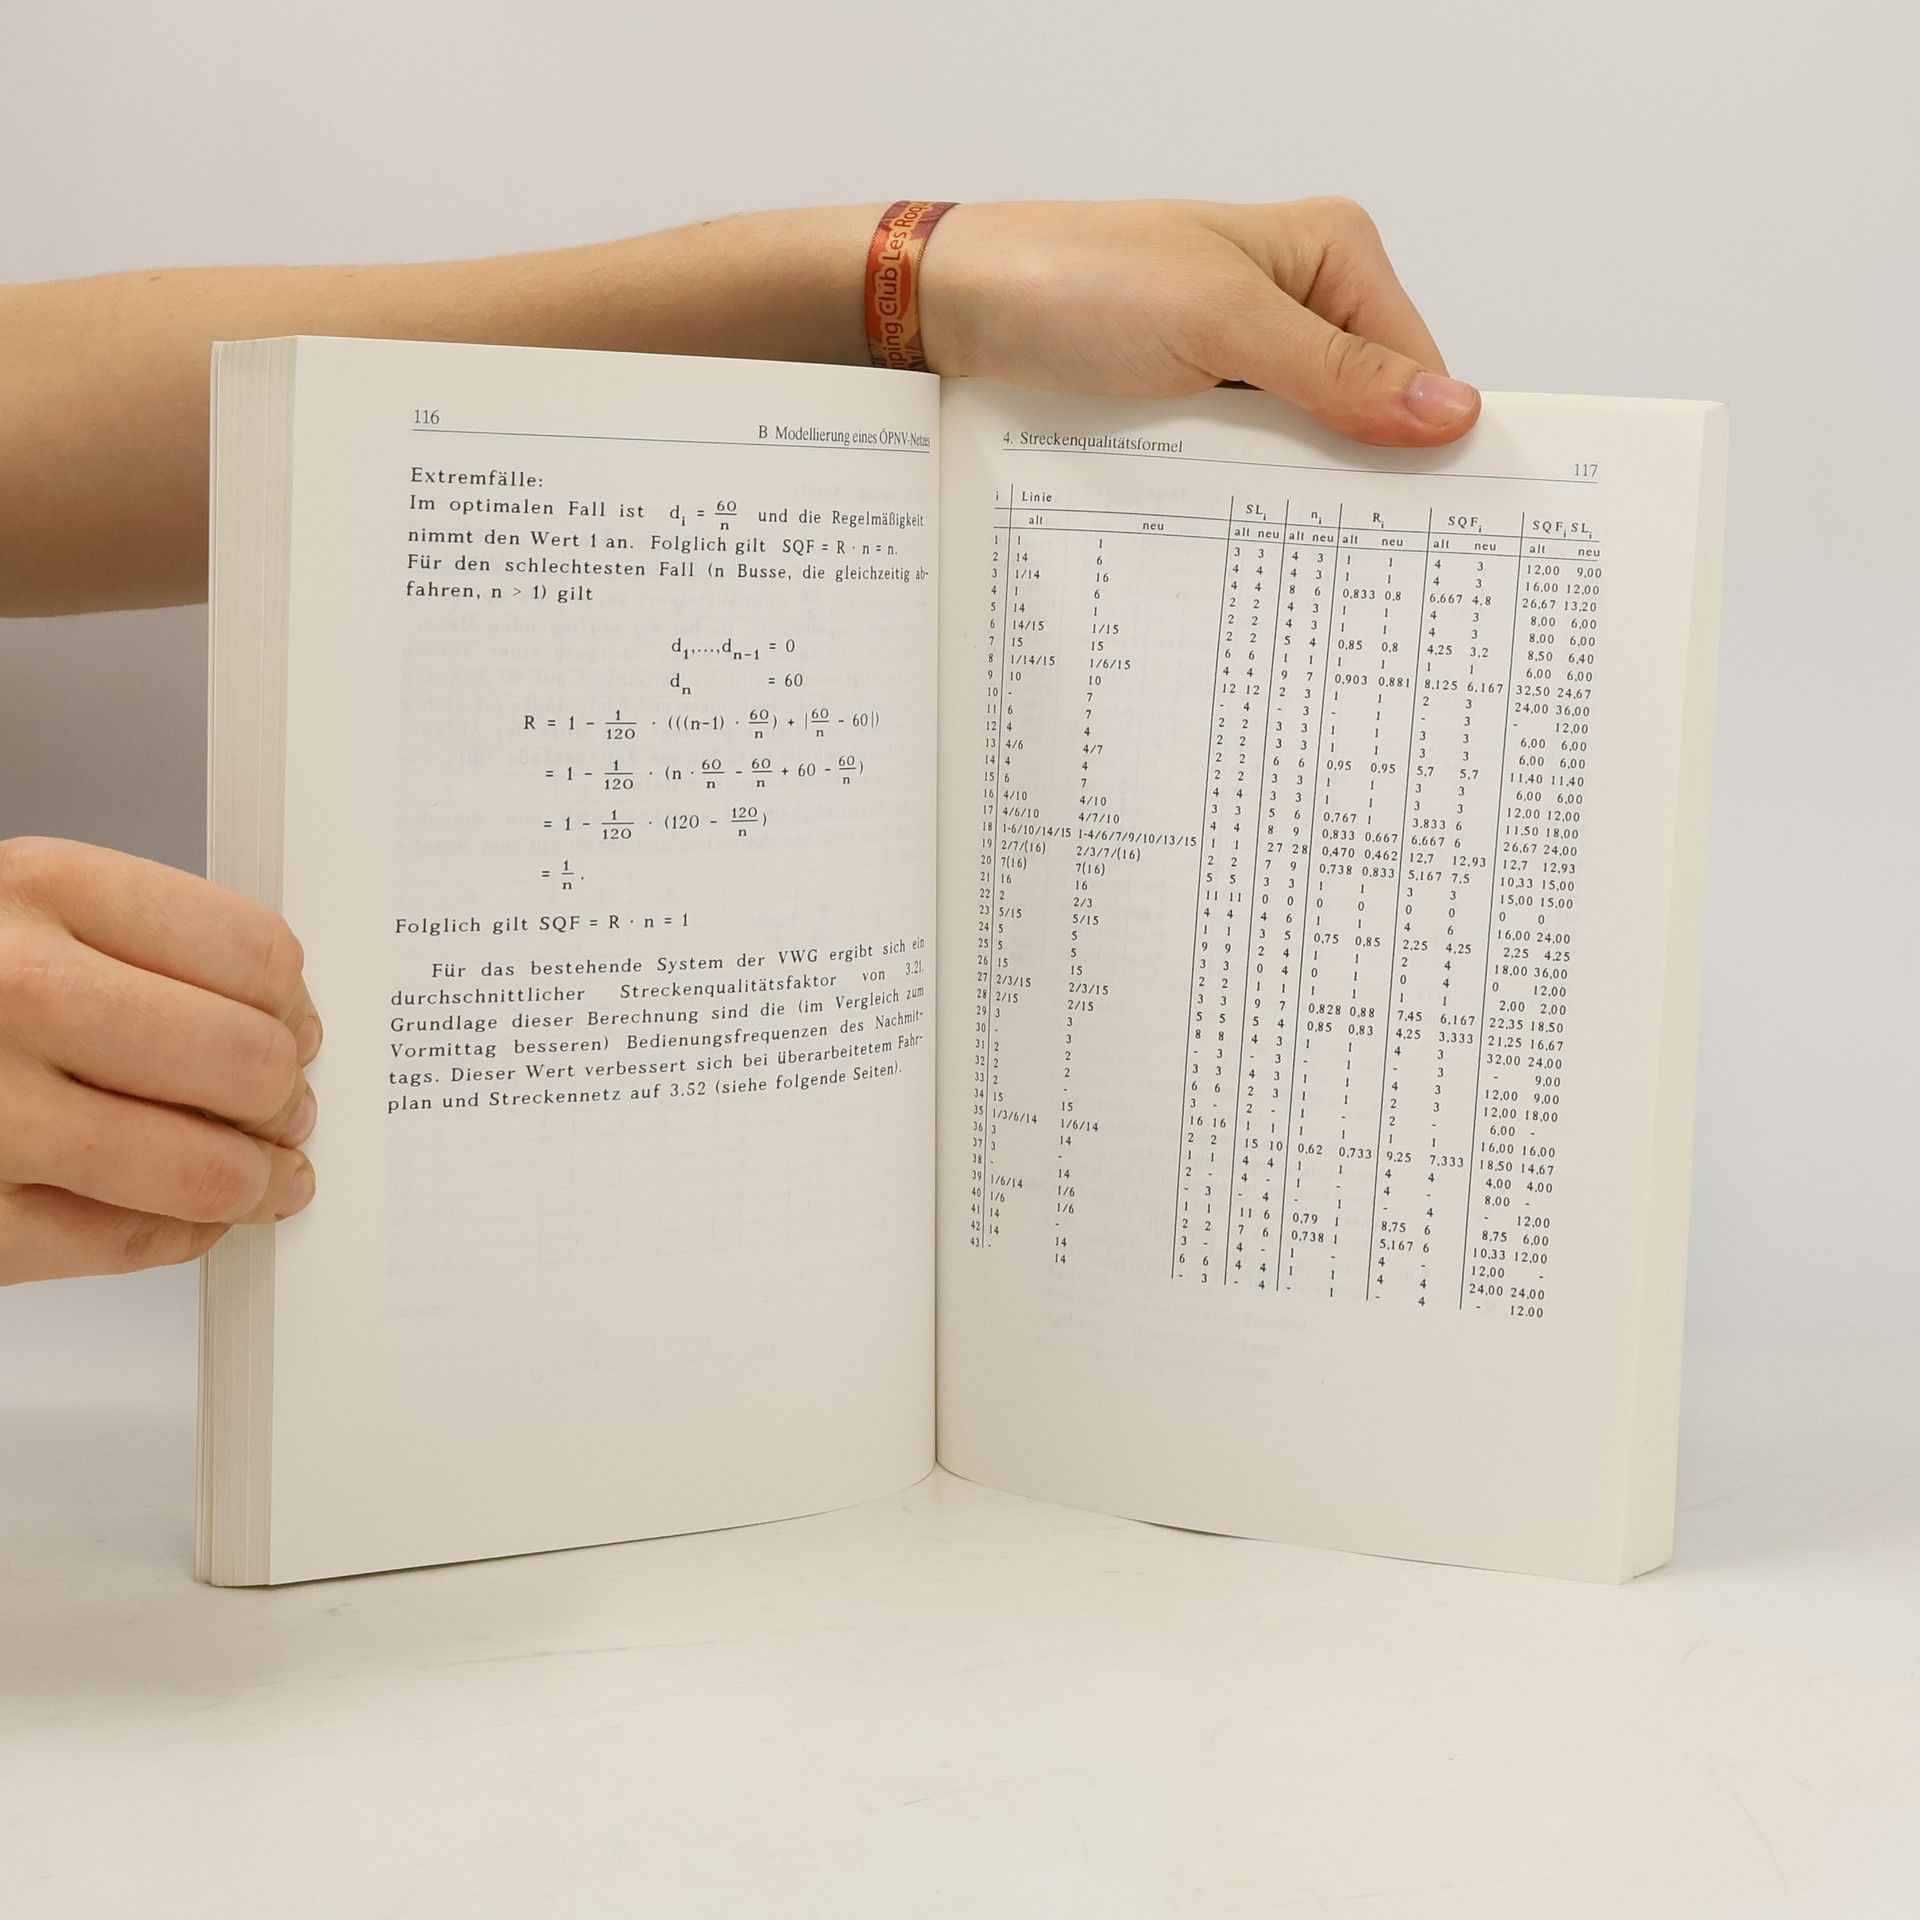 ping Club Les Roq
116
B Modellierung eines ÖPNV-Netzes
Extremfälle:
Im optimalen Fall ist d_i = 60/n und die Regelmäßigkeit
nimmt den Wert 1 an. Folglich gilt SQF = R · n = n.
Für den schlechtesten Fall (n Busse, die gleichzeitig ab-
fahren, n > 1) gilt
d_1,...,d_n-1 = 0
d_n = 60
R = 1 - 1/120 · (((n-1) · 60/n) + |60/n - 60|)
= 1 - 1/120 · (n · 60/n - 60/n + 60 - 60/n)
= 1 - 1/120 · (120 - 120/n)
= 1/n .
Folglich gilt SQF = R · n = 1
Für das bestehende System der VWG ergibt sich ein
durchschnittlicher Streckenqualitätsfaktor von 3.21.
Grundlage dieser Berechnung sind die (im Vergleich zum
Vormittag besseren) Bedienungsfrequenzen des Nachmit-
tags. Dieser Wert verbessert sich bei überarbeitetem Fahr-
plan und Streckennetz auf 3.52 (siehe folgende Seiten).
4. Streckenqualitätsformel
117
i Linie SL_i n_i R_i SQF_i SQF_i SL_i
alt neu alt neu alt neu alt neu alt neu alt neu
1 1 1 3 3 4 3 1 1 4 3 12,00 9,00
2 14 6 4 4 4 3 1 1 4 3 16,00 12,00
3 1/14 16 4 4 8 6 0,833 0,8 6,667 4,8 26,67 13,20
4 1 6 2 2 4 3 1 1 4 3 8,00 6,00
5 14 1 2 2 4 3 1 1 4 3 8,00 6,00
6 14/15 1/15 2 2 5 4 0,85 0,8 4,25 3,2 8,50 6,40
7 15 15 6 6 1 1 1 1 1 1 6,00 6,00
8 1/14/15 1/6/15 4 4 9 7 0,903 0,881 8,125 6,167 32,50 24,67
9 10 10 12 12 2 3 1 1 2 3 24,00 36,00
10 - 7 - 4 - 3 - 1 - 3 - 12,00
11 6 7 2 2 3 3 1 1 3 3 6,00 6,00
12 4 4 2 2 3 3 1 1 3 3 6,00 6,00
13 4/6 4/7 2 2 6 6 0,95 0,95 5,7 5,7 11,40 11,40
14 4 4 2 2 3 3 1 1 3 3 6,00 6,00
15 6 7 4 4 3 3 1 1 3 3 12,00 12,00
16 4/10 4/10 3 3 5 6 0,767 1 3,833 6 11,50 18,00
17 4/6/10 4/7/10 4 4 8 9 0,833 0,667 6,667 6 26,67 24,00
18 1-6/10/14/15 1-4/6/7/9/10/13/15 1 1 27 28 0,470 0,462 12,7 12,93 12,7 12,93
19 2/7/(16) 2/3/7/(16) 2 2 7 9 0,738 0,833 5,167 7,5 10,33 15,00
20 7(16) 7(16) 5 5 3 3 1 1 3 3 15,00 15,00
21 16 16 11 11 0 0 0 0 0 0 0 0
22 2 2/3 4 4 4 6 1 1 4 6 16,00 24,00
23 5/15 5/15 1 1 3 5 0,75 0,85 2,25 4,25 2,25 4,25
24 5 5 9 9 2 4 1 1 2 4 18,00 36,00
25 5 5 3 3 0 4 0 1 0 4 0 12,00
26 15 15 2 2 1 1 1 1 1 1 2,00 2,00
27 2/3/15 2/3/15 3 3 9 7 0,828 0,88 7,45 6,167 22,35 18,50
28 2/15 2/15 5 5 5 4 0,85 0,83 4,25 3,333 21,25 16,67
29 3 3 8 8 4 3 1 1 4 3 32,00 24,00
30 - 3 - 3 - 3 - 1 - 3 - 9,00
31 2 2 3 3 4 3 1 1 4 3 12,00 9,00
32 2 2 6 6 2 3 1 1 2 3 12,00 18,00
33 2 - 3 - 2 - 1 - 2 - 6,00 -
34 15 15 16 16 1 1 1 1 1 1 16,00 16,00
35 1/3/6/14 1/6/14 2 2 15 10 0,62 0,733 9,25 7,333 18,50 14,67
36 3 14 1 1 4 4 1 1 4 4 4,00 4,00
37 3 - 2 - 4 - 1 - 4 - 8,00 -
38 - 14 - 3 - 4 - 1 - 4 - 12,00
39 1/6/14 1/6 1 1 11 6 0,79 1 8,75 6 8,75 6,00
40 1/6 1/6 2 2 7 6 0,738 1 5,167 6 10,33 12,00
41 14 - 3 - 4 - 1 - 4 - 12,00 -
42 14 14 6 6 4 4 1 1 4 4 24,00 24,00
43 - 14 - 3 - 4 - 1 - 4 - 12.00